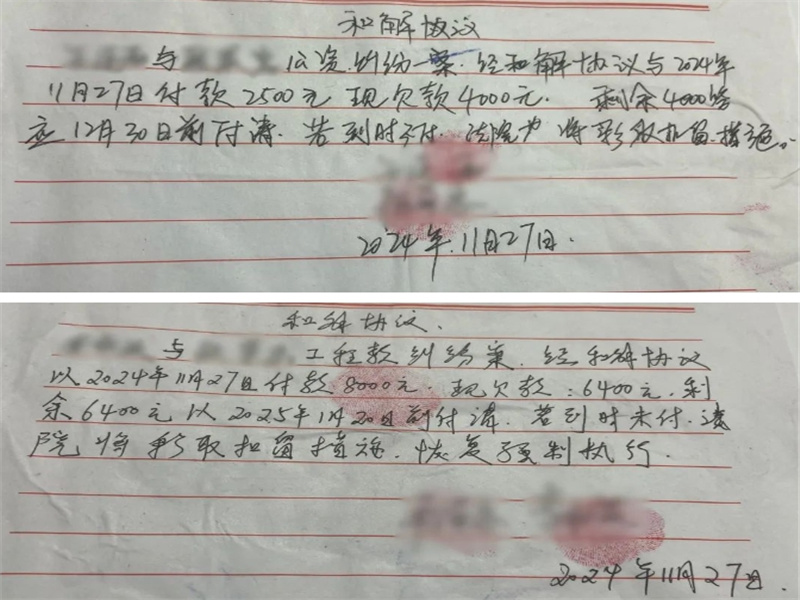 和解协议
与 工资纠纷一案.经和解协议与2024年
11月27日付款2500元 现欠款4000元. 剩余4000
应12月30日前付清.若到时不付.法院 将采取扣留.措施。
2024年.11月27日.
和解协议.
与 工程款纠纷案.经和解协议
以2024年11月27日付款8000元.现欠款:6400元.剩
余6400元以2025年1月20日前付清.若到时未付.法
院将采取扣留措施.恢复强制执行.
2024年11月27日.